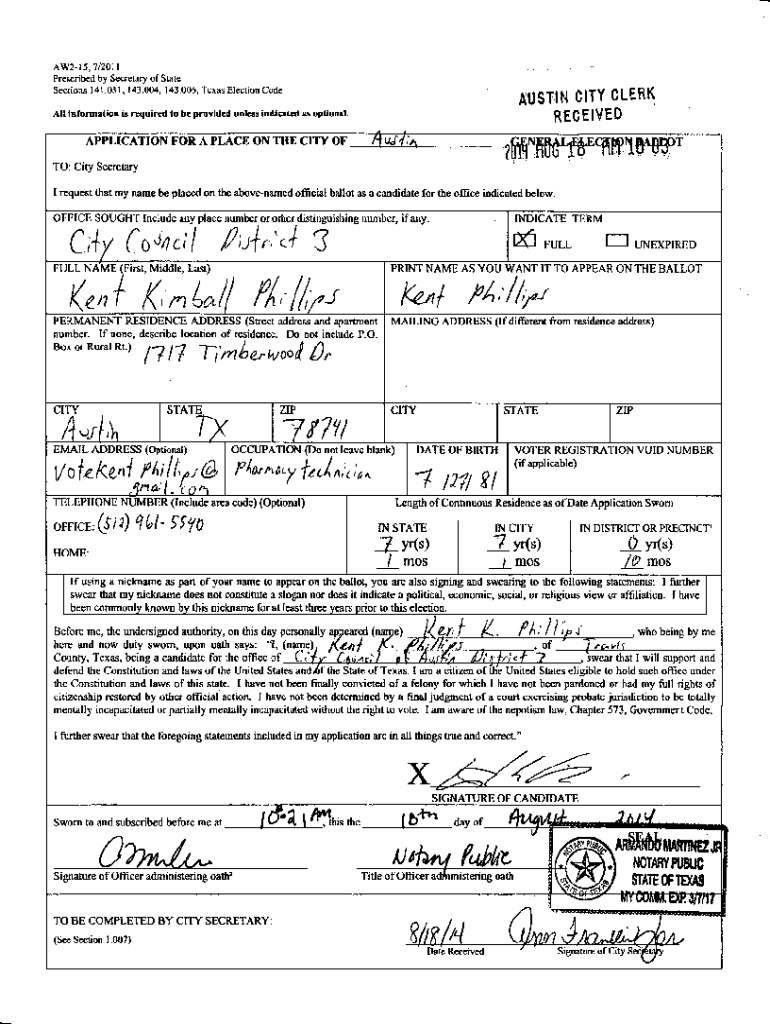 AW2-15, 7/2011
Prescribed by Secretary of State
Sections 141.031, 143.004, 143.005, Texas Election Code
AUSTIN CITY CLERK
RECEIVED
All information is required to be provided unless indicated as optional.
APPLICATION FOR A PLACE ON THE CITY OF Austin GENERAL ELECTION BALLOT
2014 AUG 18 AM 10 05
TO: City Secretary
I request that my name be placed on the above-named official ballot as a candidate for the office indicated below.
OFFICE SOUGHT Include any place number or other distinguishing number, if any. INDICATE TERM
City Council District 3 X FULL UNEXPIRED
FULL NAME (First, Middle, Last) PRINT NAME AS YOU WANT IT TO APPEAR ON THE BALLOT
Kent Kimball Phillips Kent Phillips
PERMANENT RESIDENCE ADDRESS (Street address and apartment MAILING ADDRESS (If different from residence address)
number. If none, describe location of residence. Do not include P.O.
Box or Rural Rt.) 1717 Timberwood Dr
CITY STATE ZIP CITY STATE ZIP
Austin TX 78741
EMAIL ADDRESS (Optional) OCCUPATION (Do not leave blank) DATE OF BIRTH VOTER REGISTRATION VUID NUMBER
(if applicable)
voteKent Phillips@ Pharmacy technician 7 /27/ 81
gmail.com
TELEPHONE NUMBER (Include area code) (Optional) Length of Continuous Residence as of Date Application Sworn
OFFICE: (512) 961-5540 IN STATE IN CITY IN DISTRICT OR PRECINCT¹
7 yr(s) 7 yr(s) 0 yr(s)
HOME:
1 mos 1 mos 10 mos
If using a nickname as part of your name to appear on the ballot, you are also signing and swearing to the following statements: I further
swear that my nickname does not constitute a slogan nor does it indicate a political, economic, social, or religious view or affiliation. I have
been commonly known by this nickname for at least three years prior to this election.
Before me, the undersigned authority, on this day personally appeared (name) Kent K. Phillips, who being by me
here and now duty sworn, upon oath says: "I, (name) Kent K. Phillips, of Travis
County, Texas, being a candidate for the office of City Council of Austin District 3, swear that I will support and
defend the Constitution and laws of the United States and of the State of Texas. I am a citizen of the United States eligible to hold such office under
the Constitution and laws of this state. I have not been finally convicted of a felony for which I have not been pardoned or had my full rights of
citizenship restored by other official action. I have not been determined by a final judgment of a court exercising probate jurisdiction to be totally
mentally incapacitated or partially mentally incapacitated without the right to vote. I am aware of the nepotism law, Chapter 573, Government Code.
I further swear that the foregoing statements included in my application are in all things true and correct."
X
SIGNATURE OF CANDIDATE
Sworn to and subscribed before me at 10:21 AM, this the 18th day of August 2014
SEAL
ARMANDO MARTINEZ JR
NOTARY PUBLIC
STATE OF TEXAS
MY COMM. EXP. 3/7/17
NOTARY PUBLIC
STATE OF TEXAS
Notary Public
Signature of Officer administering oath² Title of Officer administering oath
TO BE COMPLETED BY CITY SECRETARY:
(See Section 1.007) 8/18/14
Date Received Signature of City Secretary